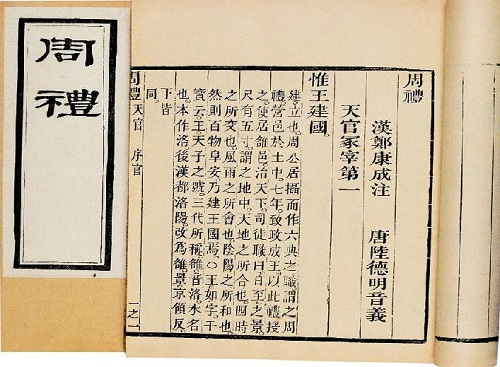 周禮
周禮
漢鄭康成注 唐陸德明音義
天官冢宰第一
惟王建國
建立也周公居攝而作六典之職謂之周
禮營邑於土中七年致政成王以此禮授
之使居雒邑治天下司徒職曰日至之景
尺有五寸謂之地中天地之所合也四時
之所交也風雨之所會也陰陽之所和也
然則百物阜安乃建王國焉〇王如字干
寶云王天子之號三代所稱雒音洛水名
也本作洛後漢都洛陽改爲雒景京領反
下皆
同
周禮 天官 序官 一之一